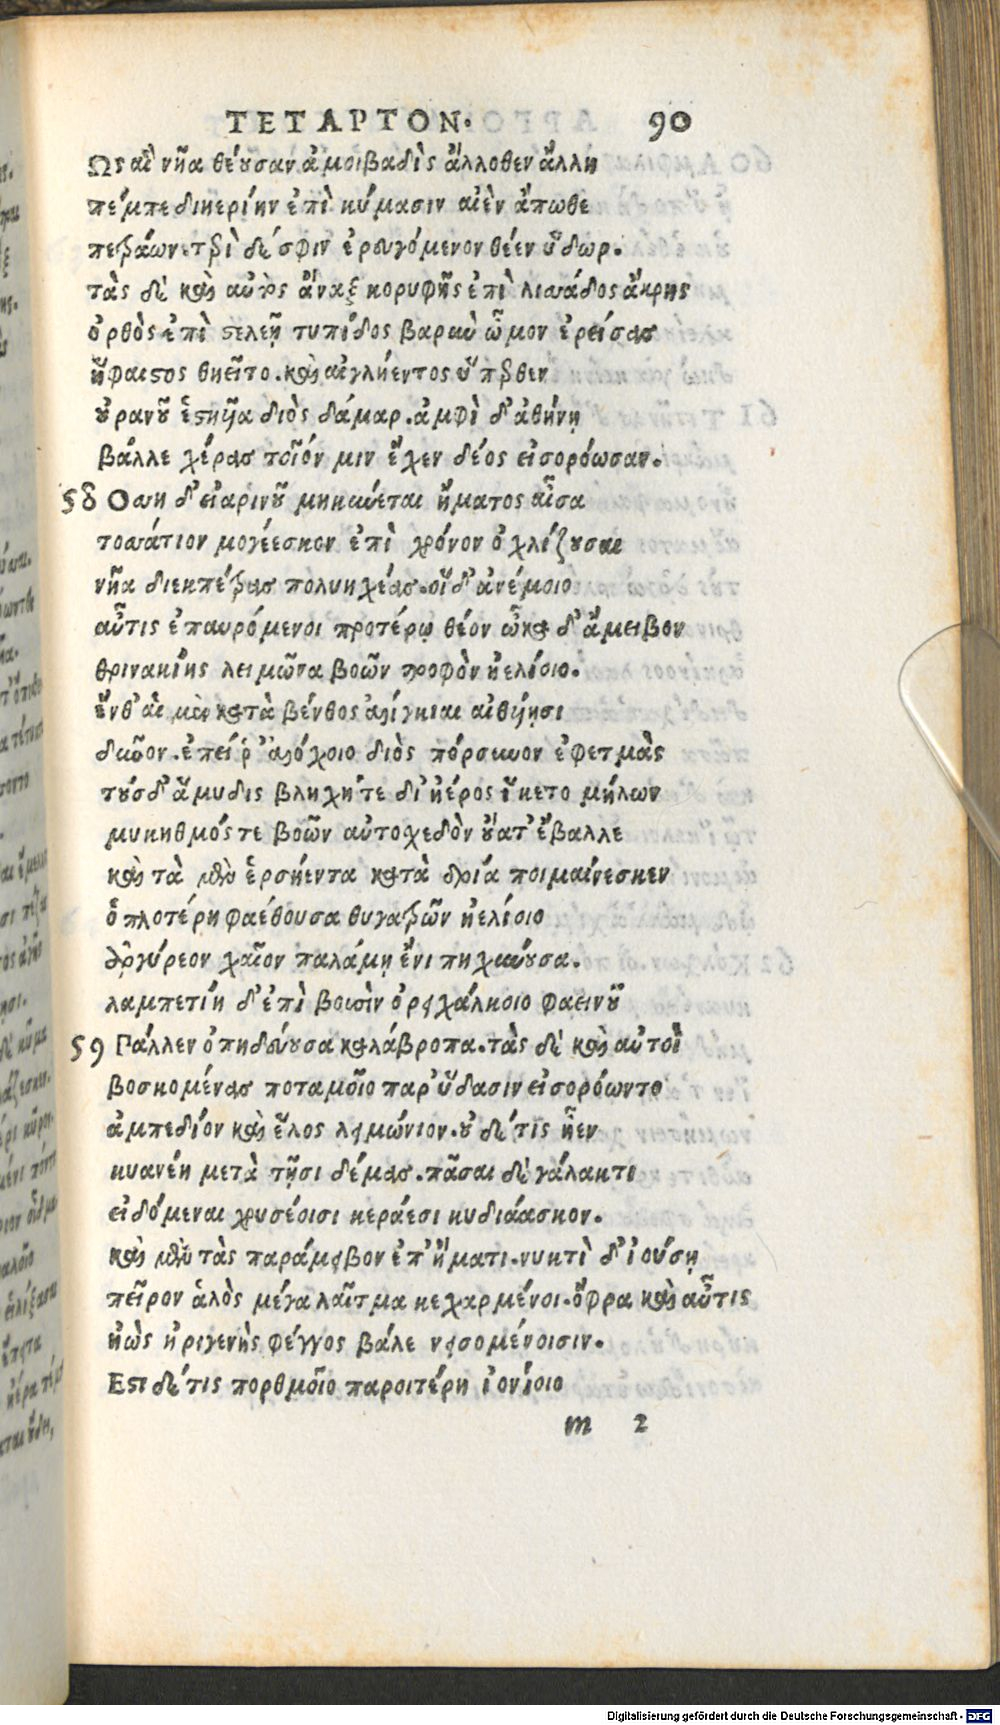 ΤΕΤΑΡΤΟΝ. 90
Ως αἳ νῆα θέουσαν ἀμοιβαδὶς ἄλλοθεν ἄλλη
πέμπε διηερίην ἐπὶ κύμασιν αἰὲν ἄπωθε
πετράων. περὶ δέ σφιν ἐρευγόμενον θέεν ὕδωρ.
τὰς δὲ καὶ αὐτὸς ἄναξ κορυφῆς ἐπὶ λισσάδος ἄκρης
ὀρθὸς ἐπὶ στελεῇ τυπίδος βαρὺν ὦμον ἐρείσας
ἥφαιστος θηεῖτο. καὶ αἰγλήεντος ὕπερθεν
οὐρανοῦ ἑστηῦα διὸς δάμαρ. ἀμφὶ δ' ἀθήνῃ
βάλλε χέρας τοῖόν μιν ἔχεν δέος εἰσορόωσαν.
58 Οσση δ' εἰαρινοῦ μηκύνεται ἤματος αἶσα
τοσσάτιον μογέεσκον ἐπὶ χρόνον ὀχλίζουσαι
νῆα διεκπέτρας πολυηχέας. οἳ δ' ἀνέμοιο
αὖτις ἐπαυρόμενοι προτέρω θέον ὦκα δ' ἄμειβον
θρινακίης λειμῶνα βοῶν τροφὸν ἠελίοιο.
ἔνθ' αἱ μὲν κατὰ βένθος ἀλίγκιαι αἰθυίῃσι
δῦνον. ἐπεί ῥ' ἀλόχοιο διὸς πόρσυνον ἐφετμὰς
τοὺσδ' ἄμυδις βληχή τε δι' ἠέρος ἵκετο μήλων
μυκηθμός τε βοῶν αὐτοσχεδὸν οὔατ' ἔβαλλε
καὶ τὰ μὲν ἑρσήεντα κατὰ δρία ποιμαίνεσκεν
ὁπλοτέρη φαέθουσα θυγατρῶν ἠελίοιο
ἀργύρεον χαῖον παλάμῃ ἔνι πηχύνουσα.
λαμπετίη δ' ἐπὶ βουσὶν ὀρειχάλκοιο φαεινοῦ
59 Πάλλεν ὀπηδεύουσα καλάβροπα. τὰς δὲ καὶ αὐτοὶ
βοσκομένας ποταμοῖο παρ' ὕδασιν εἰσορόωντο
ἀμπεδίον καὶ ἕλος λειμώνιον. οὐ δέ τις ἦεν
κυανέη μετὰ τῇσι δέμας. πᾶσαι δὲ γάλακτι
εἰδόμεναι χρυσέοισι κεράεσι κυδιάασκον.
καὶ μὲν τὰς παράμειβον ἐπ' ἤματι. νυκτὶ δ' ἰούσῃ
πεῖρον ἁλὸς μέγα λαῖτμα κεχαρμένοι. ὄφρα καὶ αὖτις
ἠὼς ἠριγενὴς φέγγος βάλε νεισομένοισιν.
Εστι δέ τις πορθμοῖο παροιτέρη ἰονίοιο
m 2
Digitalisierung gefördert durch die Deutsche Forschungsgemeinschaft - DFG